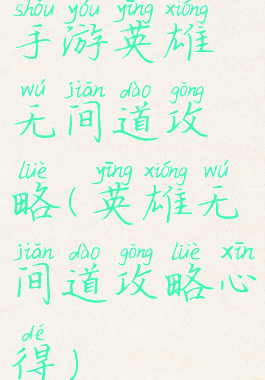 shǒu yóu yīng xióng
手游英雄
wú jiān dào gōng
无间道攻
lüè yīng xióng wú
略(英雄无
jiān dào gōng lüè xīn
间道攻略心
dé
得)